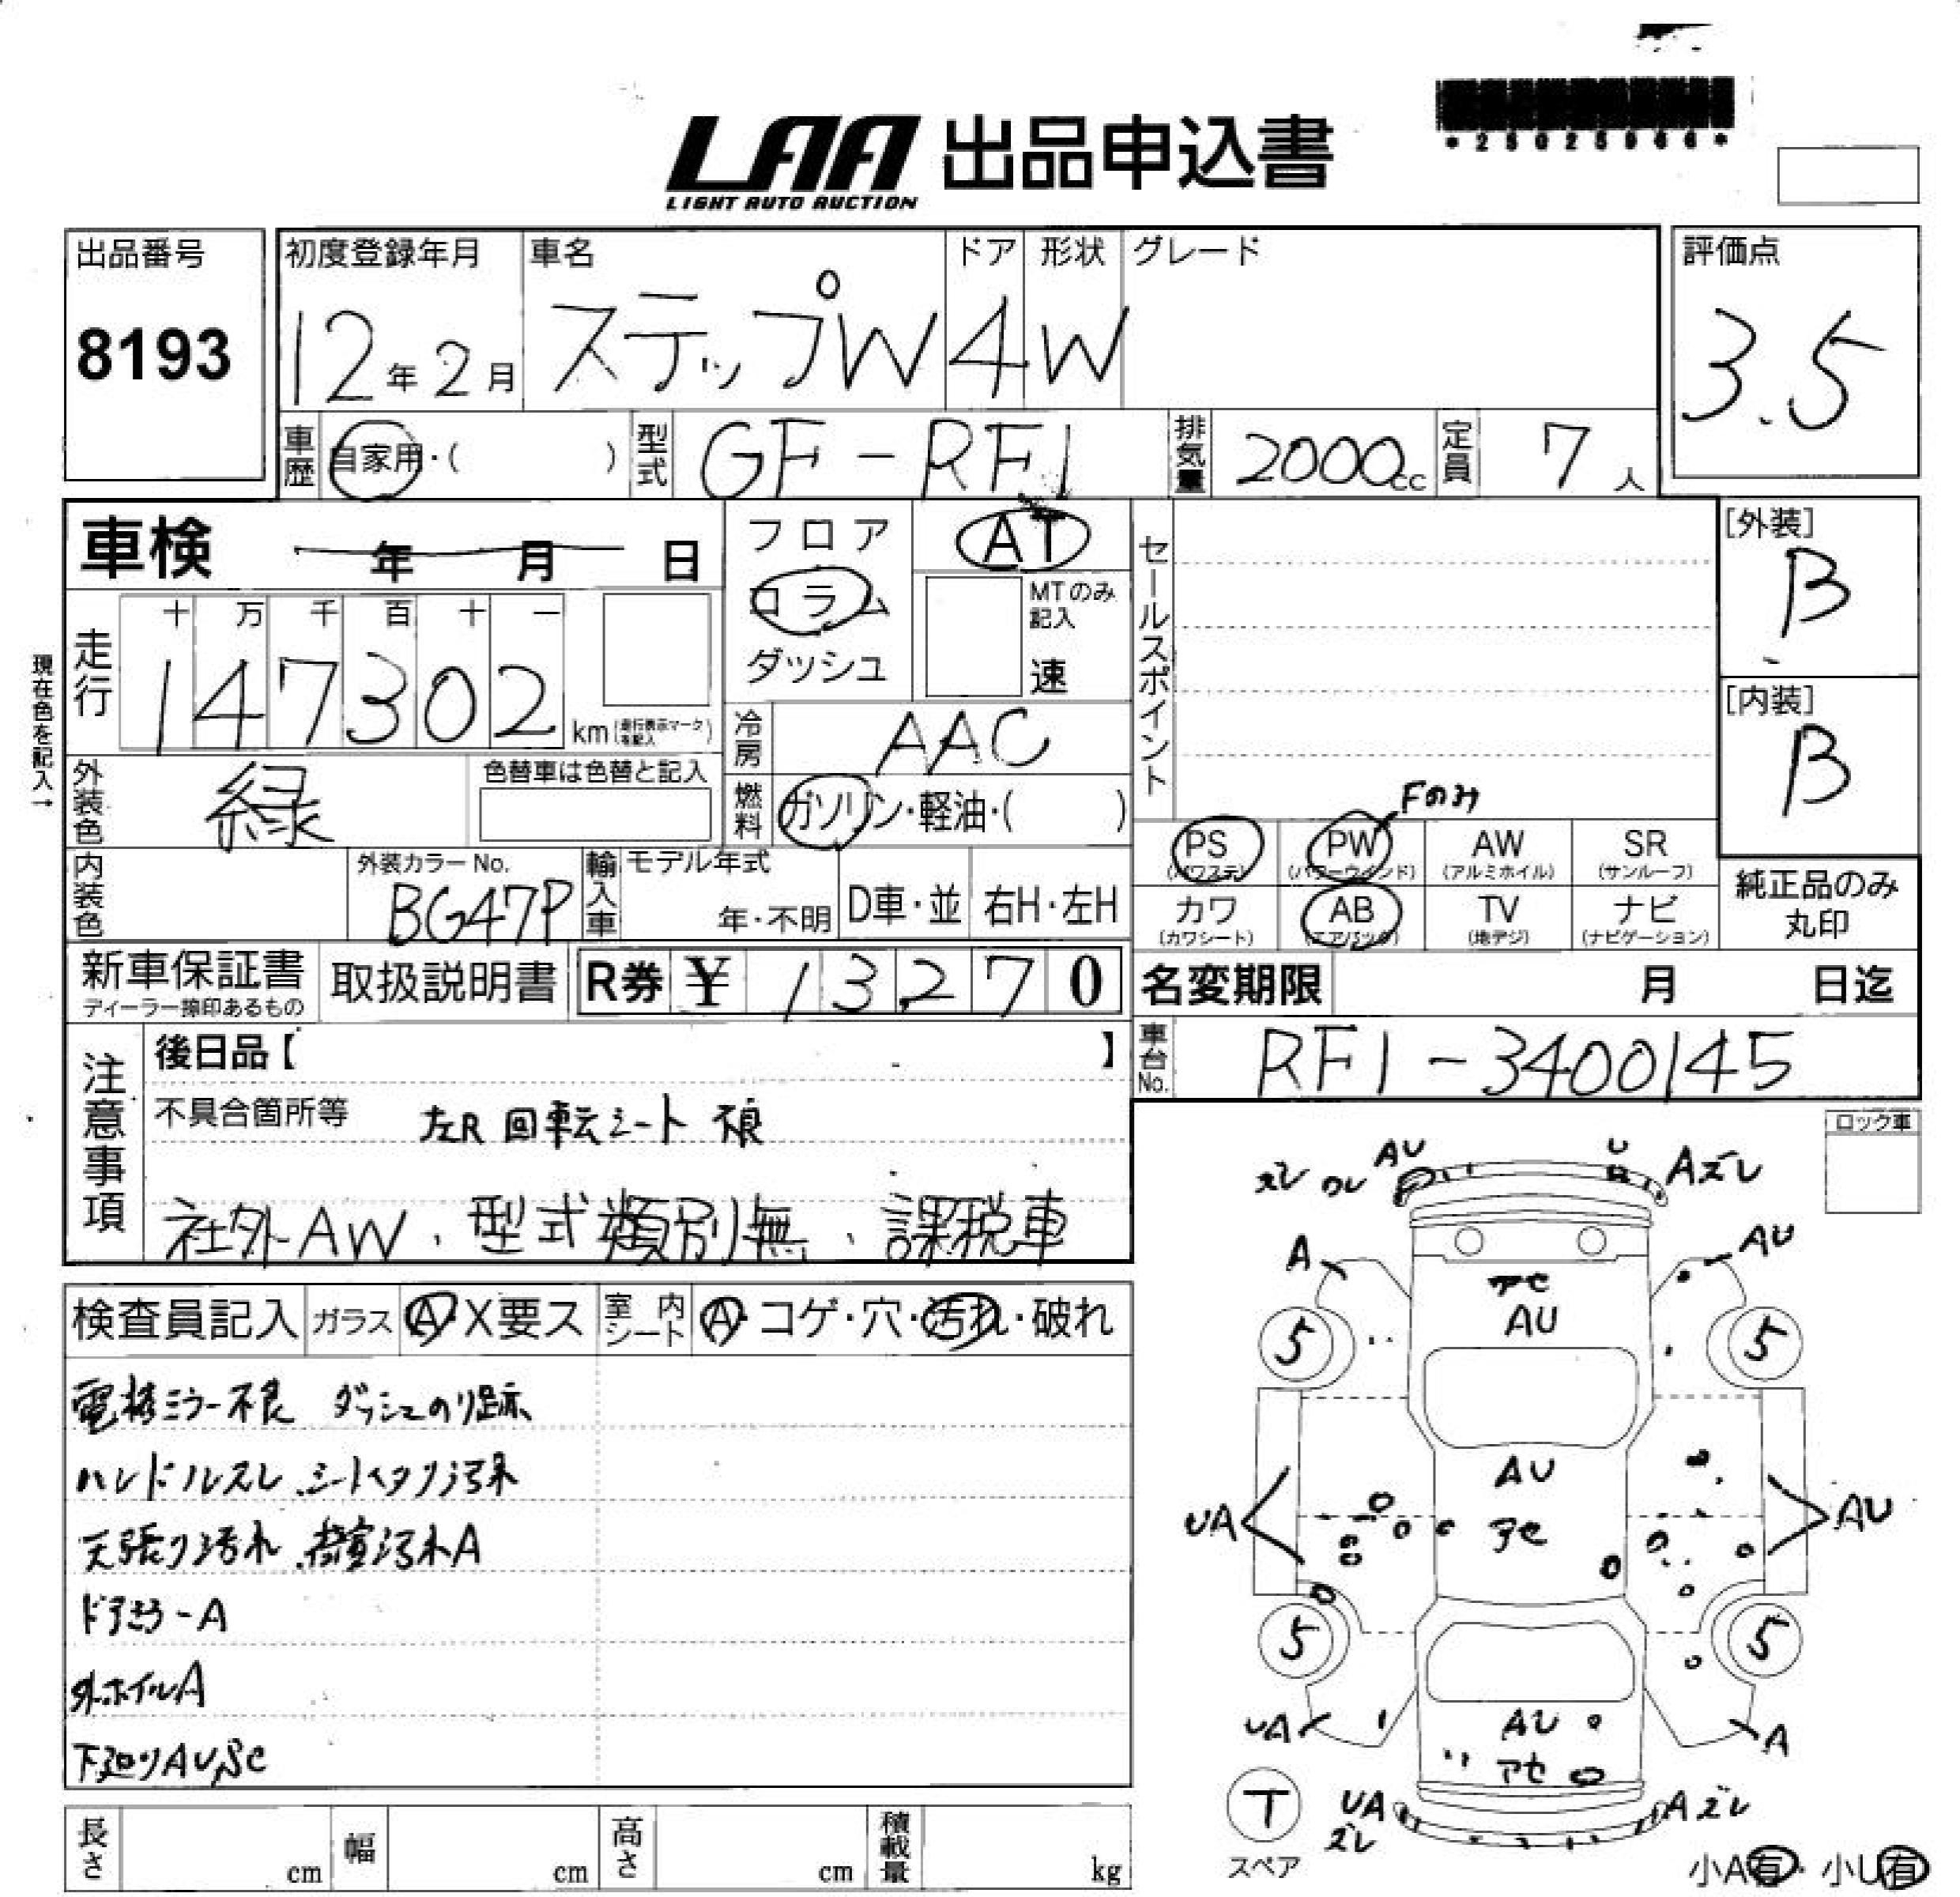 LAA 出品申込書
LIGHT AUTO AUCTION
出品番号
8193
初度登録年月
12年2月
車名
ステップW
ドア
4
形状
W
グレード
評価点
3.5
車歴
自家用・( )
型式
GF-RF1
排気量
2000cc
定員
7人
車検 年 月 日
フロア
コラム
ダッシュ
AT
MTのみ記入
速
セールスポイント
[外装]
B
[内装]
B
現在色を記入→
走行
十 万 千 百 十 一
147302 km(走行表示マークを記入)
冷房
AAC
外装色
緑
色替車は色替と記入
燃料
ガソリン・軽油・( )
Fのみ
PS (パワステ)
PW (パワーウインド)
AW (アルミホイル)
SR (サンルーフ)
カワ (カワシート)
AB (エアバック)
TV (地デジ)
ナビ (ナビゲーション)
純正品のみ
丸印
内装色
外装カラーNo.
BG47P
輸入車
モデル年式
年・不明
D車・並
右H・左H
新車保証書
ディーラー捺印あるもの
取扱説明書
R券 ¥ 13270
名変期限 月 日迄
車台No.
RF1-3400145
注意事項
後日品【 】
不具合箇所等 左R 回転シート 不良
社外AW、型式類別無、課税車
ロック車
検査員記入
ガラス
A・X要ス
室内シート
A・コゲ・穴・汚れ・破れ
電格ミラー不良 ダッシュのり跡
ハンドルスレ、シートヘタリ汚れ
天張り汚れ、荷室汚れA
ドアミラーA
外ホイルA
下廻りAU,SC
ズレ ワレ AU
U Aズレ
A
AU
アセ
AU
5
5
AU
UA
アセ
AU
5
5
UA
AU
A
アセ
T
スペア
UA
ズレ
Aズレ
小A有・小U有
長さ cm
幅 cm
高さ cm
積載量 kg